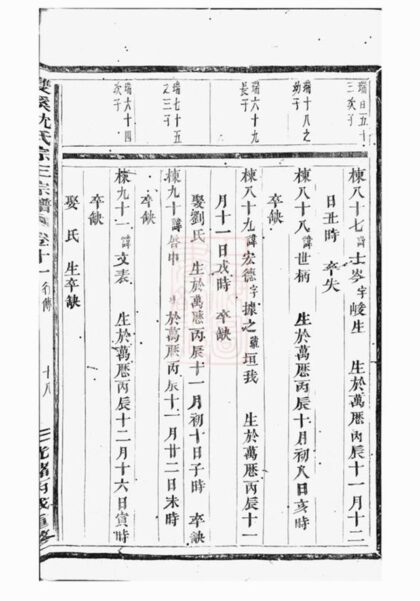 瑞百五十
三次子
棟八十七 諱士岑字峻生 生於萬曆丙辰十一月十二
日丑時 卒失
瑞十八之
幼子
棟八十八 諱世柄 生於萬曆丙辰十月初八日亥時
卒缺
瑞六十九
長子
棟八十九 諱宏德字據之號垣我 生於萬曆丙辰十一
月十一日戌時 卒缺
娶劉氏 生於萬曆丙辰十一月初十日子時 卒缺
瑞七十五
之三子
棟九十 諱啓申 生於萬曆丙辰十一月廿二日未時
卒缺
瑞六十四
次子
棟九十一 諱文表 生於萬曆丙辰十二月十六日寅時
卒缺
娶 氏 生卒缺
雙溪沈氏宗三宗譜 卷十一 行傳 十八 光緒丙戌重修